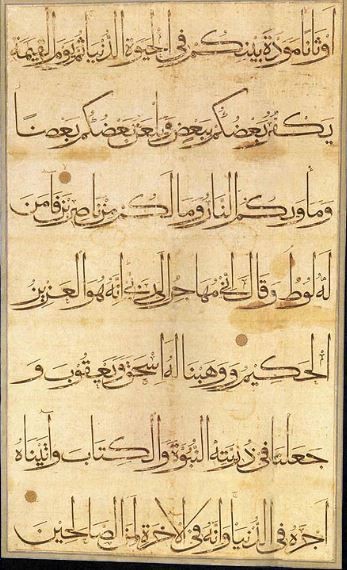 اوثانا مودة بينكم في الحيوة الدنيا ثم يوم القيمة
يكفر بعضكم ببعض ويلعن بعضكم بعضا
وماويكم النار وما لكم من ناصرين فآمن
له لوط وقال اني مهاجر الى ربي انه هو العزيز
الحكيم ووهبنا له اسحق ويعقوب و
جعلنا في ذريته النبوة والكتاب وآتيناه
اجره في الدنيا وانه في الآخرة لمن الصالحين